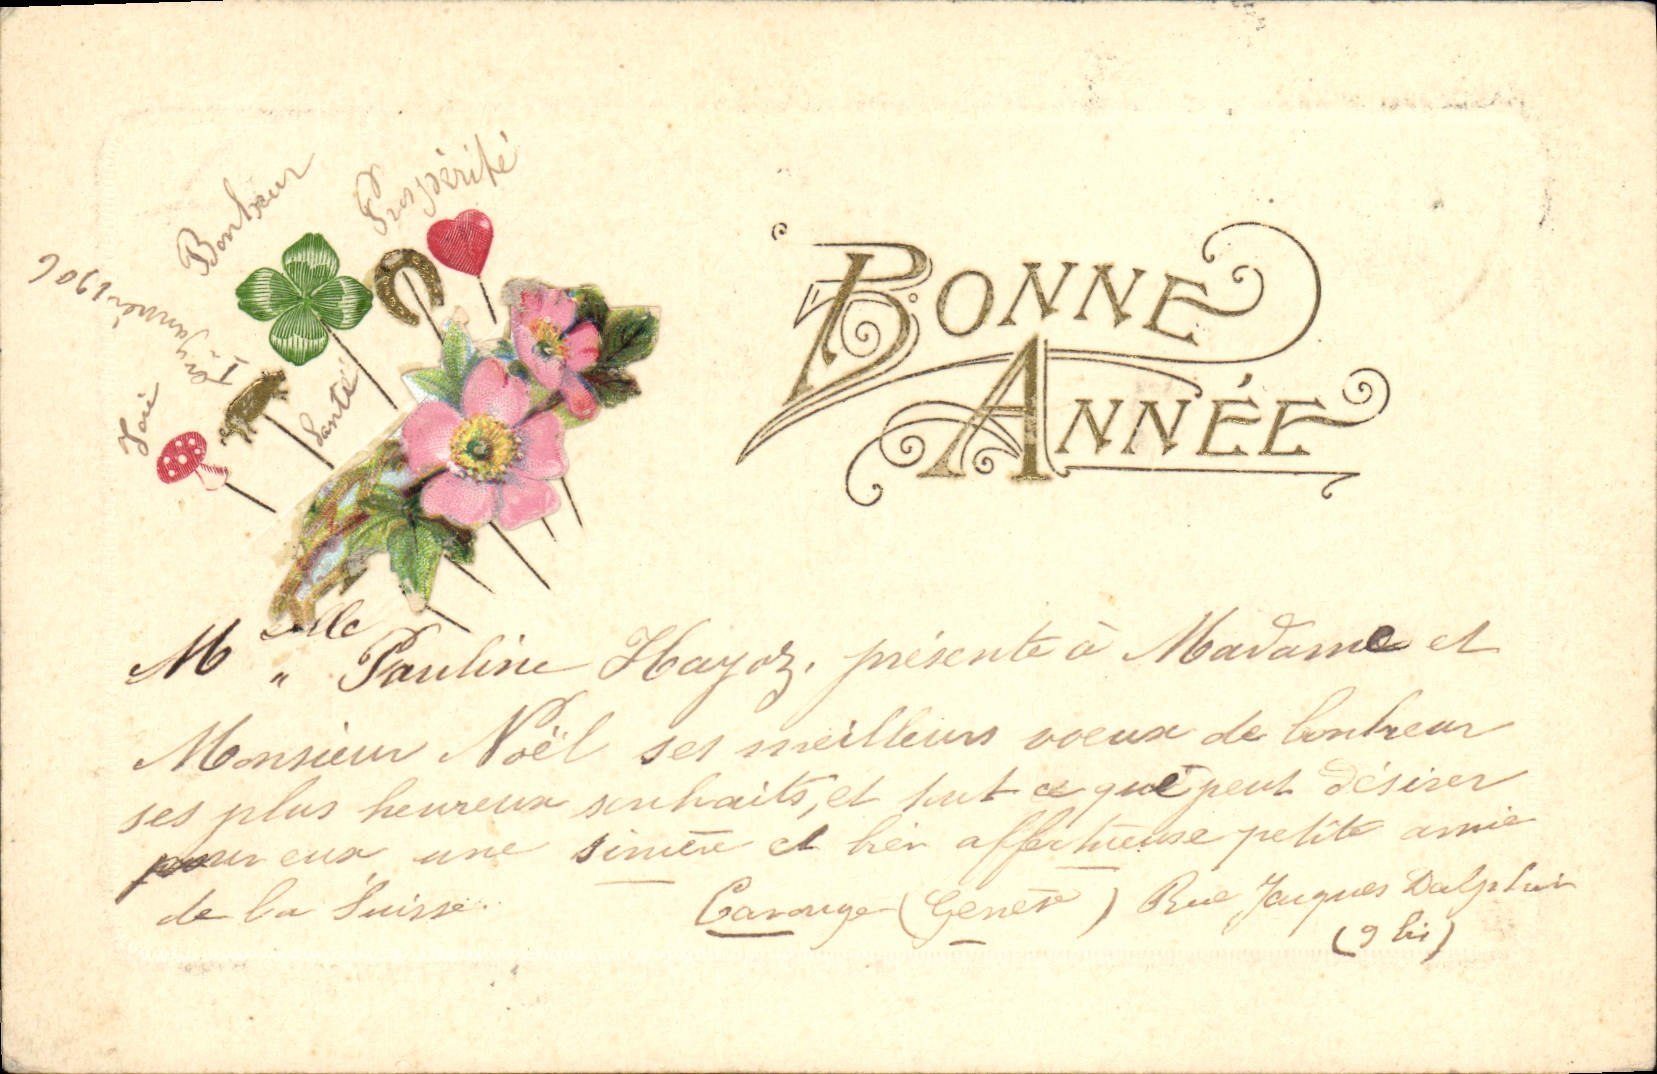 Bonheur
Prospérité
1er janvier 1906
Joie
Santé
BONNE
ANNÉE
Melle Pauline Hayoz. présente à Madame et
Monsieur Noël ses meilleurs voeux de bonheur
ses plus heureux souhaits, et tout ce que peut désirer
pour eux une sincère et bien affectueuse petite amie
de la Suisse. Carouge (Genève) Rue Jacques Dalphin
(9 bis)